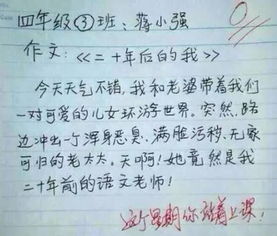 四年级③班：蒋小强
0
作文：《二十年后的我》
今天天气不错，我和老婆带着我们
一对可爱的儿女环游世界。突然，路
边冲出一个浑身恶臭，满脸污秽，无家
可归的老太太。天啊！她竟然是我
二十年前的语文老师！
这个星期你站着上课！